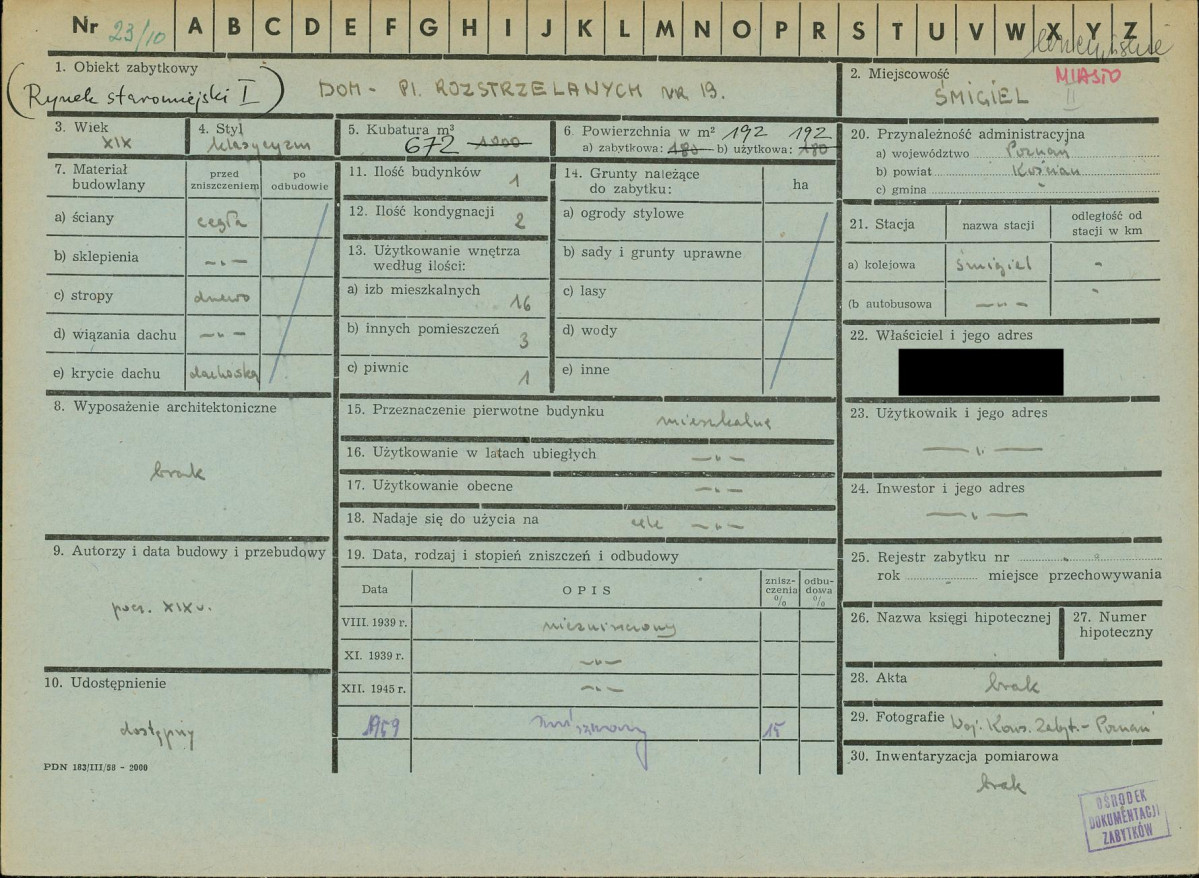 Nr 23/10 A B C D E F G H I J K L M N O P R S T U V W X Y Z
1. Obiekt zabytkowy
(Rynek staromiejski I)
DOM - Pl. ROZSTRZELANYCH NR 19.
2. Miejscowość
MIASTO
ŚMIGIEL II
3. Wiek
XIX
4. Styl
klasycyzm
5. Kubatura m³
672
6. Powierzchnia w m² 192 192
a) zabytkowa: 180 b) użytkowa: 180
7. Materiał budowlany
przed zniszczeniem
po odbudowie
a) ściany cegła
b) sklepienia —„—
c) stropy drewno
d) wiązania dachu —„—
e) krycie dachu dachówka
8. Wyposażenie architektoniczne
brak
9. Autorzy i data budowy i przebudowy
pocz. XIX w.
10. Udostępnienie
dostępny
PDN 183/III/58 - 2000
11. Ilość budynków 1
12. Ilość kondygnacji 2
13. Użytkowanie wnętrza
według ilości:
a) izb mieszkalnych 16
b) innych pomieszczeń 3
c) piwnic 1
14. Grunty należące
do zabytku:
ha
a) ogrody stylowe
b) sady i grunty uprawne
c) lasy
d) wody
e) inne
15. Przeznaczenie pierwotne budynku
mieszkalne
16. Użytkowanie w latach ubiegłych —„—
17. Użytkowanie obecne —„—
18. Nadaje się do użycia na cele —„—
19. Data, rodzaj i stopień zniszczeń i odbudowy
Data
OPIS
zniszczenia %
odbudowa %
VIII. 1939 r. niezniszczony
XI. 1939 r. —„—
XII. 1945 r. —„—
1959 15
20. Przynależność administracyjna
a) województwo Poznań
b) powiat Kościan
c) gmina
21. Stacja
nazwa stacji
odległość od stacji w km
a) kolejowa Śmigiel -
(b autobusowa —„— -
22. Właściciel i jego adres
23. Użytkownik i jego adres
—„—
24. Inwestor i jego adres
—„—
25. Rejestr zabytku nr
rok miejsce przechowywania
26. Nazwa księgi hipotecznej
27. Numer hipoteczny
28. Akta
brak
29. Fotografie Woj. Kons. Zabyt. - Poznań
30. Inwentaryzacja pomiarowa
brak
OŚRODEK
DOKUMENTACJI
ZABYTKÓW